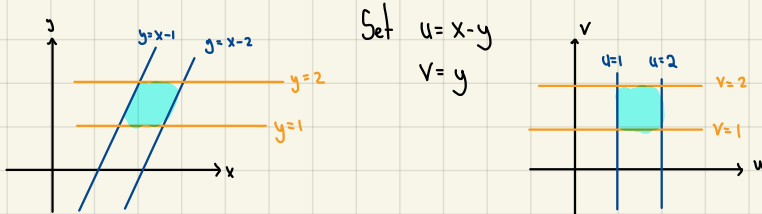 y
y=x-1
y=x-2
y=2
y=1
x
Set u=x-y
v=y
v
u=1 u=2
v=2
v=1
u